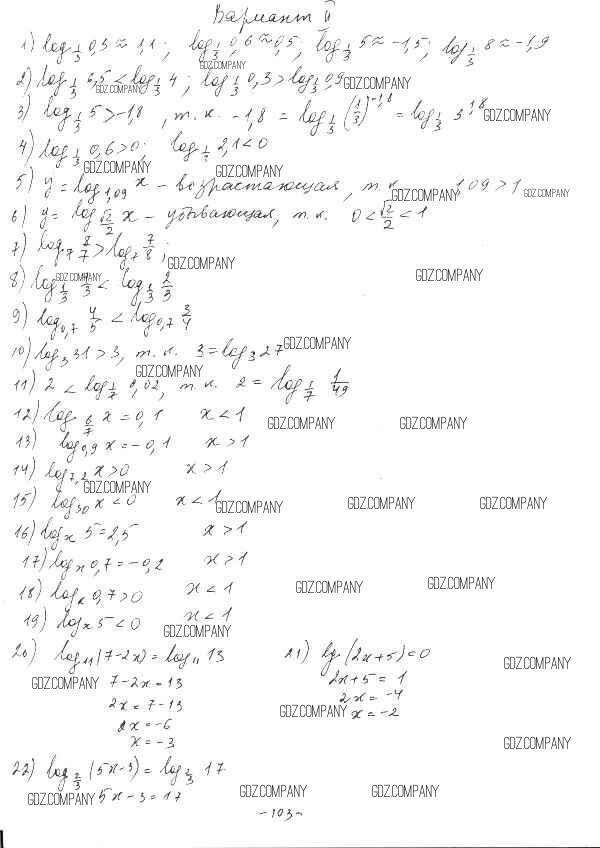 Вариант II
1) log_{1/3} 0,3 ≈ 1,1; log_{1/3} 0,6 ≈ 0,5, log_{1/3} 5 ≈ -1,5; log_{1/3} 8 ≈ -1,9
2) log_{1/3} 6,5 < log_{1/3} 4; log_{1/3} 0,3 > log_{1/3} 0,9
3) log_{1/3} 5 > -1,8, т.к. -1,8 = log_{1/3} (1/3)^{-1,8} = log_{1/3} 3^{1,8}
4) log_{1/3} 0,6 > 0; log_{1/3} 2,1 < 0
5) y = log_{1,09} x - возрастающая, т.к. 1,09 > 1
6) y = log_{√2/2} x - убывающая, т.к. 0 < √2/2 < 1
7) log_7 8/7 > log_7 7/8;
8) log_{1/3} 4/3 < log_{1/3} 2/3
9) log_{0,7} 4/5 < log_{0,7} 3/4
10) log_3 31 > 3, т.к. 3 = log_3 27
11) 2 < log_{1/7} 0,02, т.к. 2 = log_{1/7} 1/49
12) log_{6/7} x = 0,1 x < 1
13) log_{0,9} x = -0,1 x > 1
14) log_{7,2} x > 0 x > 1
15) log_{30} x < 0 x < 1
16) log_x 5 = 2,5 x > 1
17) log_x 0,7 = -0,2 x > 1
18) log_x 0,7 > 0 x < 1
19) log_x 5 < 0 x < 1
20) log_{11} (7-2x) = log_{11} 13
7-2x = 13
2x = 7-13
2x = -6
x = -3
21) lg (2x+5) = 0
2x+5 = 1
2x = -4
x = -2
22) log_{2/3} (5x-3) = log_{2/3} 17
5x-3 = 17
-103-
GDZ.COMPANY